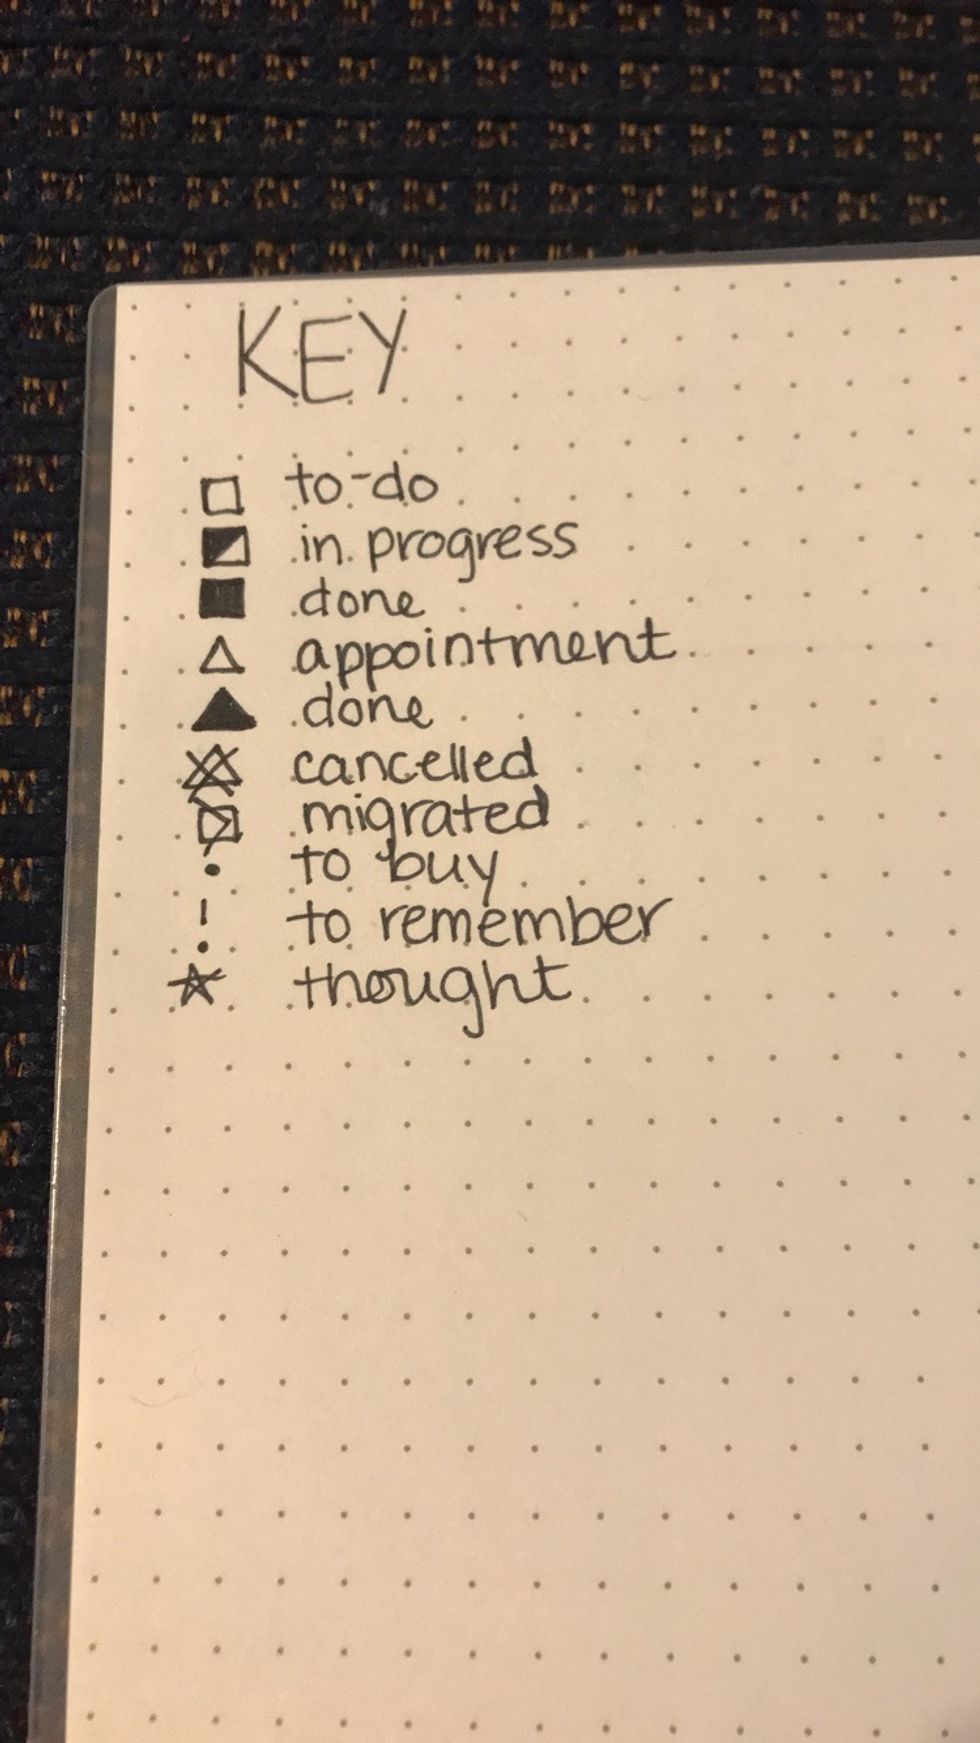 KEY
to-do
in progress
done
appointment
done
cancelled
migrated
to buy
! to remember
thought